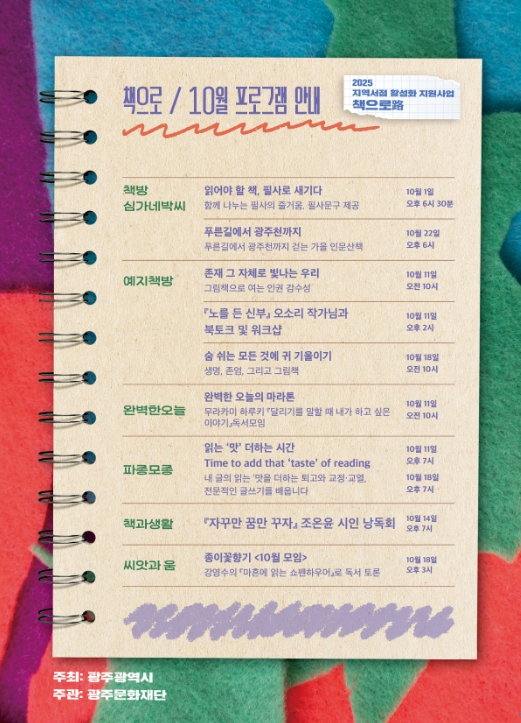 책으로 / 10월 프로그램 안내
2025
지역서점 활성화 지원사업
책으로路
책방
심가네박씨
읽어야 할 책, 필사로 새기다
함께 나누는 필사의 즐거움, 필사문구 제공
10월 1일
오후 6시 30분
푸른길에서 광주천까지
푸른길에서 광주천까지 걷는 가을 인문산책
10월 22일
오후 6시
예지책방
존재 그 자체로 빛나는 우리
그림책으로 여는 인권 감수성
10월 11일
오전 10시
『노를 든 신부』 오소리 작가님과
북토크 및 워크샵
10월 11일
오후 2시
숨 쉬는 모든 것에 귀 기울이기
생명, 존엄, 그리고 그림책
10월 18일
오전 10시
완벽한오늘
완벽한 오늘의 마라톤
무라카미 하루키 『달리기를 말할 때 내가 하고 싶은
이야기』독서모임
10월 11일
오전 10시
파종모종
읽는 ‘맛’ 더하는 시간
Time to add that ‘taste’ of reading
내 글의 읽는 ‘맛’을 더하는 퇴고와 교정·교열,
전문적인 글쓰기를 배웁니다
10월 11일
오후 7시
10월 18일
오후 7시
책과생활
『자꾸만 꿈만 꾸자』 조온윤 시인 낭독회
10월 14일
오후 7시
씨앗과 움
종이꽃향기 <10월 모임>
강영수의 『마흔에 읽는 쇼펜하우어』로 독서 토론
10월 18일
오후 3시
주최: 광주광역시
주관: 광주문화재단